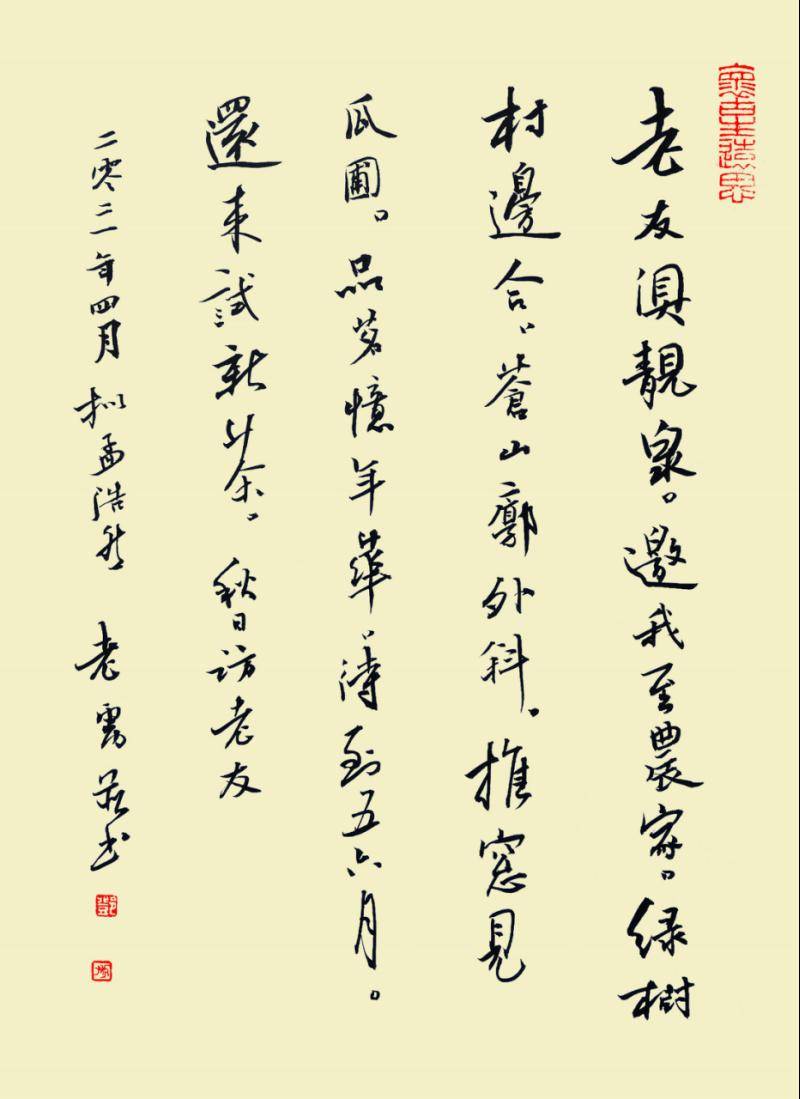 老友澳靚泉。邀我至農家。绿樹
村邊合。蒼山廓外斜。推窓見
瓜圃。品茗憶年華。待到五六月。
還来試新茶。秋日訪老友
二零二一年四月拟孟浩然 老雩荘书